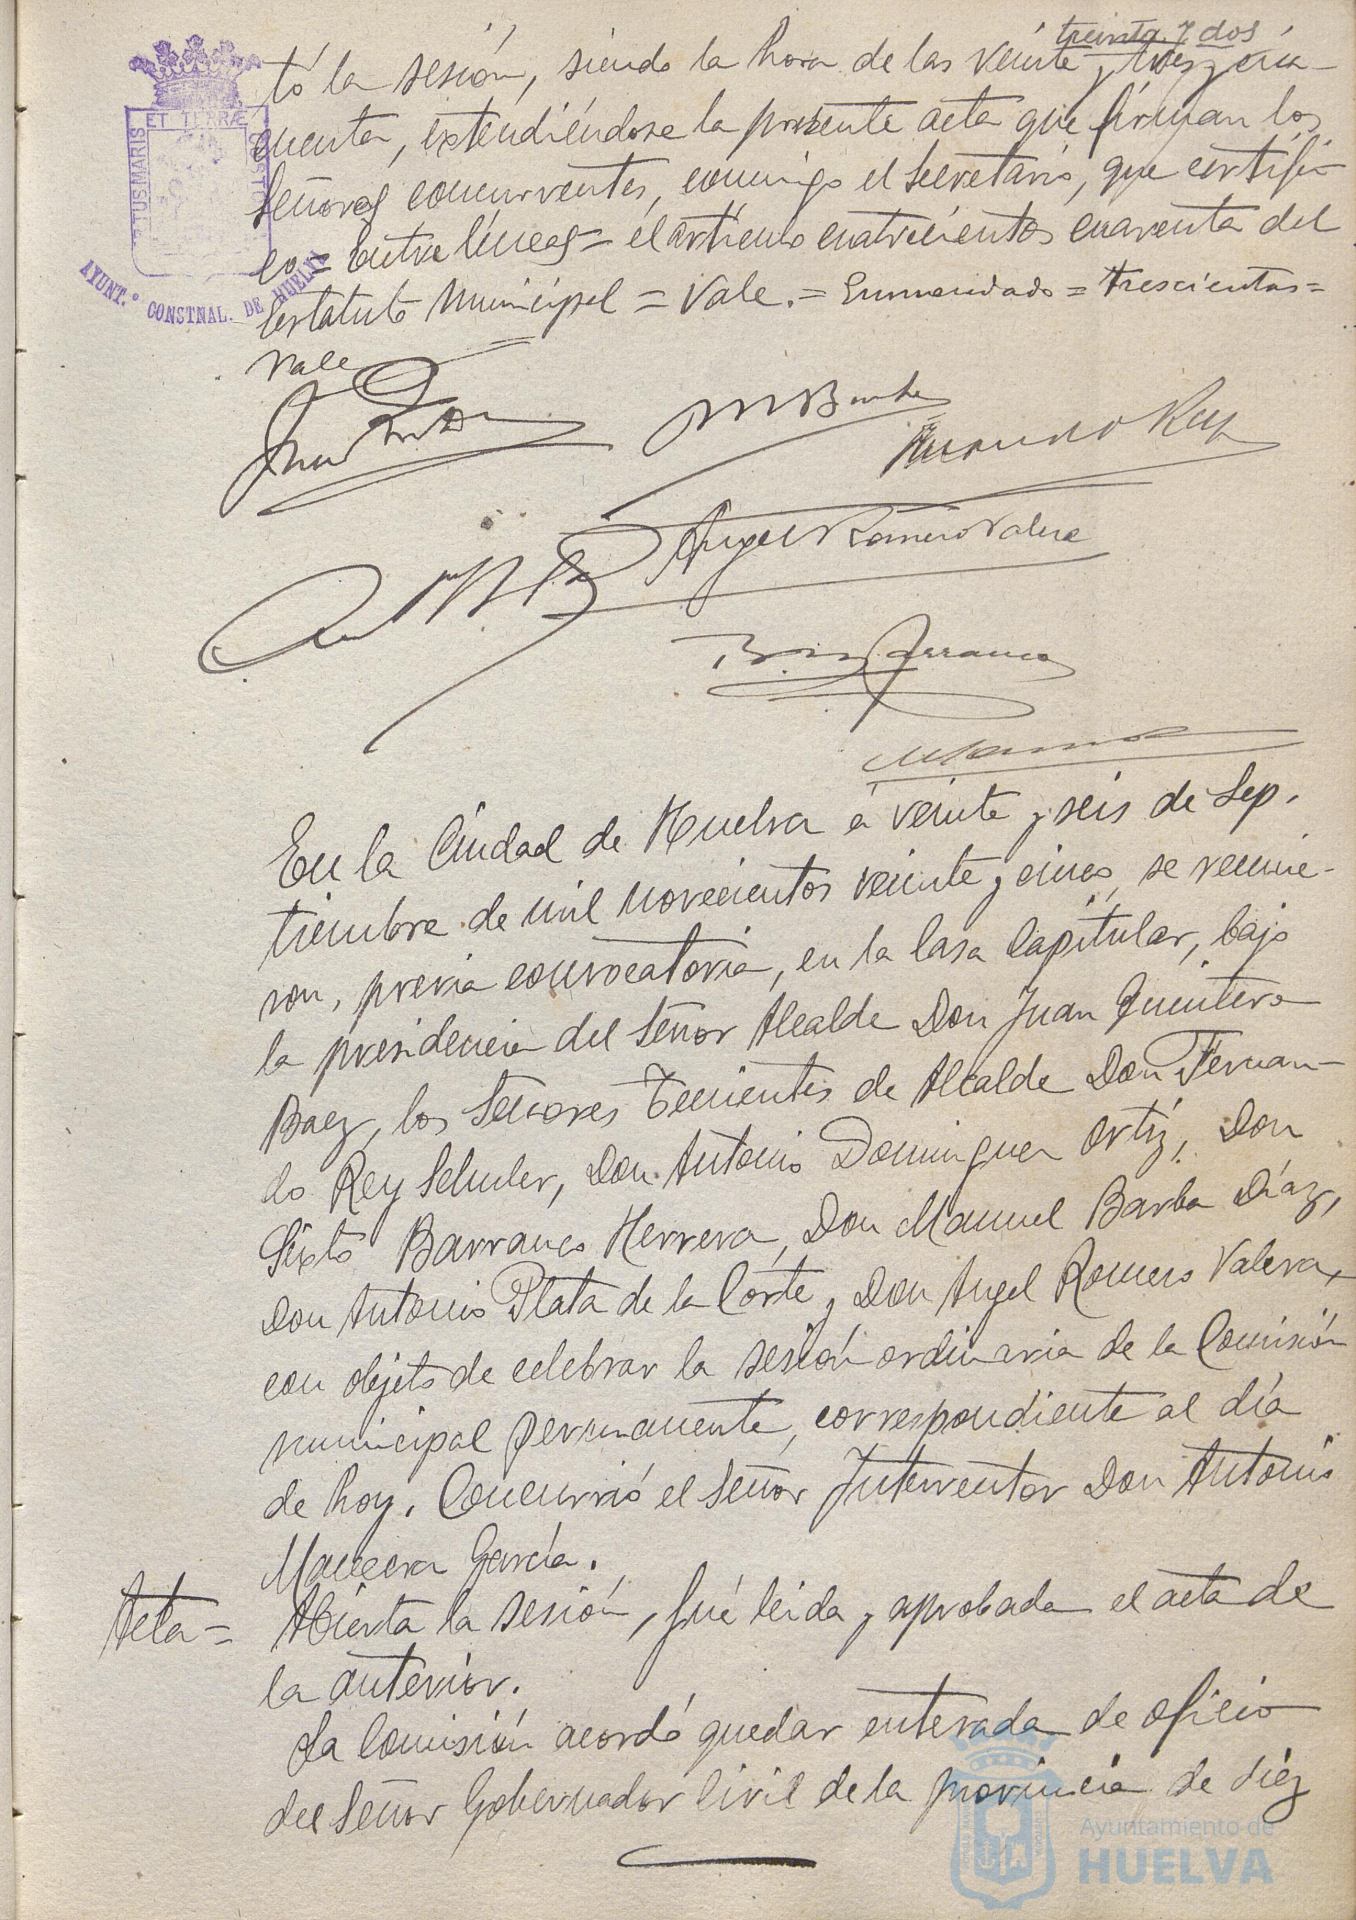 treinta y dos
tó la sesión, siendo la hora de las veinte y tres y cin-
cuenta, extendiéndose la presente acta que firman los
Señores concurrentes, conmigo el Secretario, que certifi-
co = Entre líneas = el artículo cuatrocientos cuarenta del
Estatuto Municipal = Vale. = Enmendado = trescientas =
Vale
ET TERRÆ
PORTUS MARIS
CUSTODIA
AYUNT.º CONSTNAL. DE HUELVA
M Barba
Fernando Rey
Angel Romero Valera
Barranco
En la Ciudad de Huelva á veinte y seis de Sep.
tiembre de mil novecientos veinte y cinco, se reunie-
ron, previa convocatoria, en la Casa Capitular, bajo
la presidencia del Señor Alcalde Don Juan Quintero
Baez, los Señores Tenientes de Alcalde Don Fernan-
do Rey Schuler, Don Antonio Dominguez Ortíz, Don
Sixto Barranco Herrera, Don Manuel Barba Díaz,
Don Antonio Plata de la Córte y Don Angel Romero Valera,
con objeto de celebrar la sesión ordinaria de la Comisión
municipal permanente, correspondiente al día
de hoy. Concurrió el Señor Interventor Don Antonio
García.
Acta = Abierta la sesión, fué leida y aprobada el acta de
la anterior.
La Comisión acordó quedar enterada de oficio
del Señor Gobernador Civil de la provincia de diez
Ayuntamiento de
HUELVA